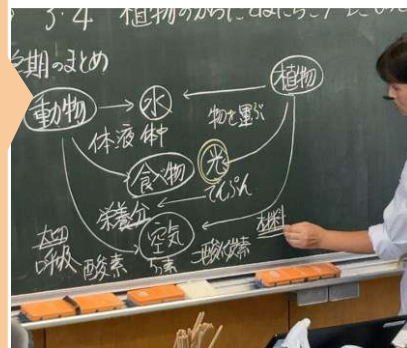 3.4 植物のからだのはたらき
学期のまとめ
動物 水 植物
体液 体中 物を運ぶ
食べ物 光
でんぷん
栄養分
空気 材料
呼吸 酸素 二酸化炭素